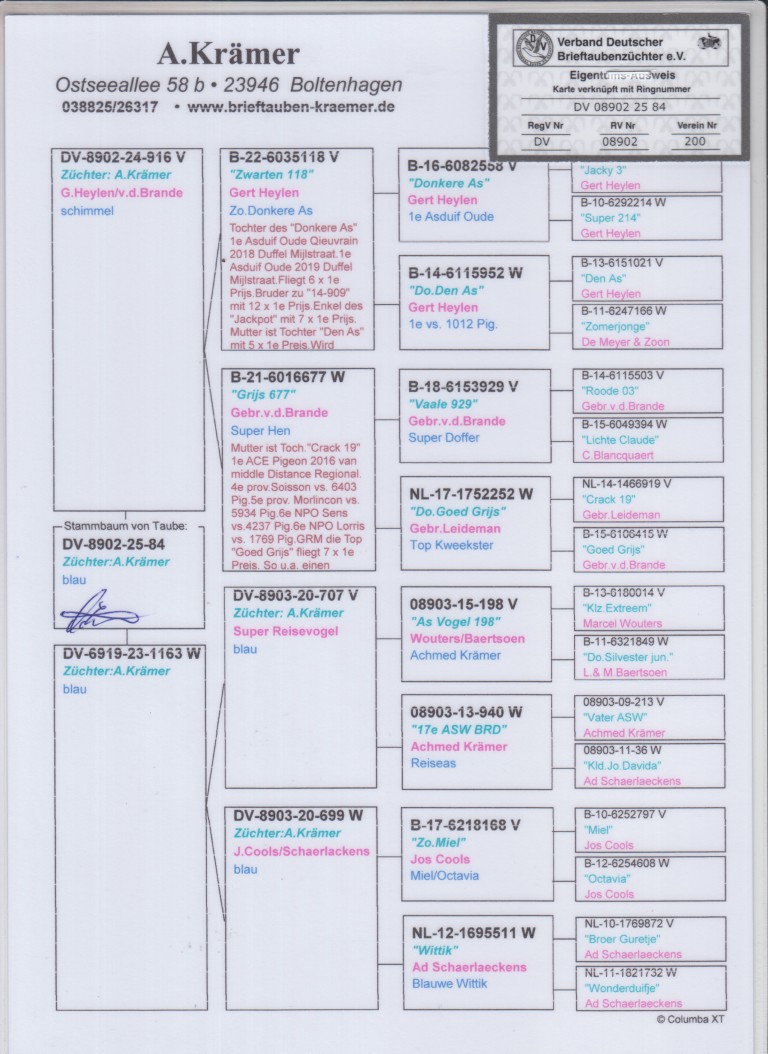 A.Krämer
Ostseeallee 58 b • 23946 Boltenhagen
038825/26317 • www.brieftauben-kraemer.de
Verband Deutscher
Brieftaubenzüchter e.V.
Karte verknüpft mit Ringnummer
DV 08902 25 84
RegV Nr RV Nr Verein Nr
DV 08902 200
DV-8902-24-916 V
Züchter: A.Krämer
G.Heylen/v.d.Brande
schimmel
Stammbaum von Taube:
DV-8902-25-84
Züchter:A.Krämer
blau
DV-6919-23-1163 W
Züchter:A.Krämer
blau
B-22-6035118 V
"Zwarten 118"
Gert Heylen
Zo.Donkere As
Tochter des "Donkere As"
1e Asduif Oude Qieuvrain
2018 Duffel Mijlstraat.1e
Asduif Oude 2019 Duffel
Mijlstraat.Fliegt 6 x 1e
Prijs.Bruder zu "14-909"
mit 12 x 1e Prijs.Enkel des
"Jackpot" mit 7 x 1e Prijs.
Mutter ist Tochter "Den As"
mit 5 x 1e Preis.Wird
B-21-6016677 W
"Grijs 677"
Gebr.v.d.Brande
Super Hen
Mutter ist Toch."Crack 19"
1e ACE Pigeon 2016 van
middle Distance Regional.
4e prov.Soisson vs. 6403
Pig.5e prov. Morlincon vs.
5934 Pig.6e NPO Sens
vs.4237 Pig.6e NPO Lorris
vs. 1769 Pig.GRM die Top
"Goed Grijs" fliegt 7 x 1e
Preis. So u.a. einen
DV-8903-20-707 V
Züchter: A.Krämer
Super Reisevogel
blau
DV-8903-20-699 W
Züchter:A.Krämer
J.Cools/Schaerlackens
blau
B-16-6082558 V
"Donkere As"
Gert Heylen
1e Asduif Oude
B-14-6115952 W
"Do.Den As"
Gert Heylen
1e vs. 1012 Pig.
B-18-6153929 V
"Vaale 929"
Gebr.v.d.Brande
Super Doffer
NL-17-1752252 W
"Do.Goed Grijs"
Gebr.Leideman
Top Kweekster
08903-15-198 V
"As Vogel 198"
Wouters/Baertsoen
Achmed Krämer
08903-13-940 W
"17e ASW BRD"
Achmed Krämer
Reiseas
B-17-6218168 V
"Zo.Miel"
Jos Cools
Miel/Octavia
NL-12-1695511 W
"Wittik"
Ad Schaerlaeckens
Blauwe Wittik
"Jacky 3"
Gert Heylen
B-10-6292214 W
"Super 214"
Gert Heylen
B-13-6151021 V
"Den As"
Gert Heylen
B-11-6247166 W
"Zomerjonge"
De Meyer & Zoon
B-14-6115503 V
"Roode 03"
Gebr.v.d.Brande
B-15-6049394 W
"Lichte Claude"
C.Blancquaert
NL-14-1466919 V
"Crack 19"
Gebr.Leideman
B-15-6106415 W
"Goed Grijs"
Gebr.v.d.Brande
B-13-6180014 V
"Klz Extreem"
Marcel Wouters
B-11-6321849 W
"Do.Silvester jun."
L.& M.Baertsoen
08903-09-213 V
"Vater ASW"
Achmed Krämer
08903-11-36 W
"Kld.Jo.Davida"
Ad Schaerlaeckens
B-10-6252797 V
"Miel"
Jos Cools
B-12-6254608 W
"Octavia"
Jos Cools
NL-10-1769872 V
"Broer Guretje"
Ad Schaerlaeckens
NL-11-1821732 W
"Wonderduifje"
Ad Schaerlaeckens
© Columba XT